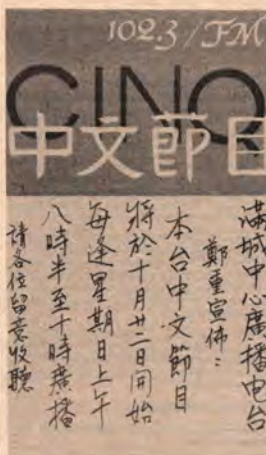 102.3/FM
CINQ
中文節目
滿城中心廣播电台
鄭重宣佈：
本台中文節目
將於十月廿二日開始
每逢星期日上午
八時半至十時廣播
請各位留意收聽